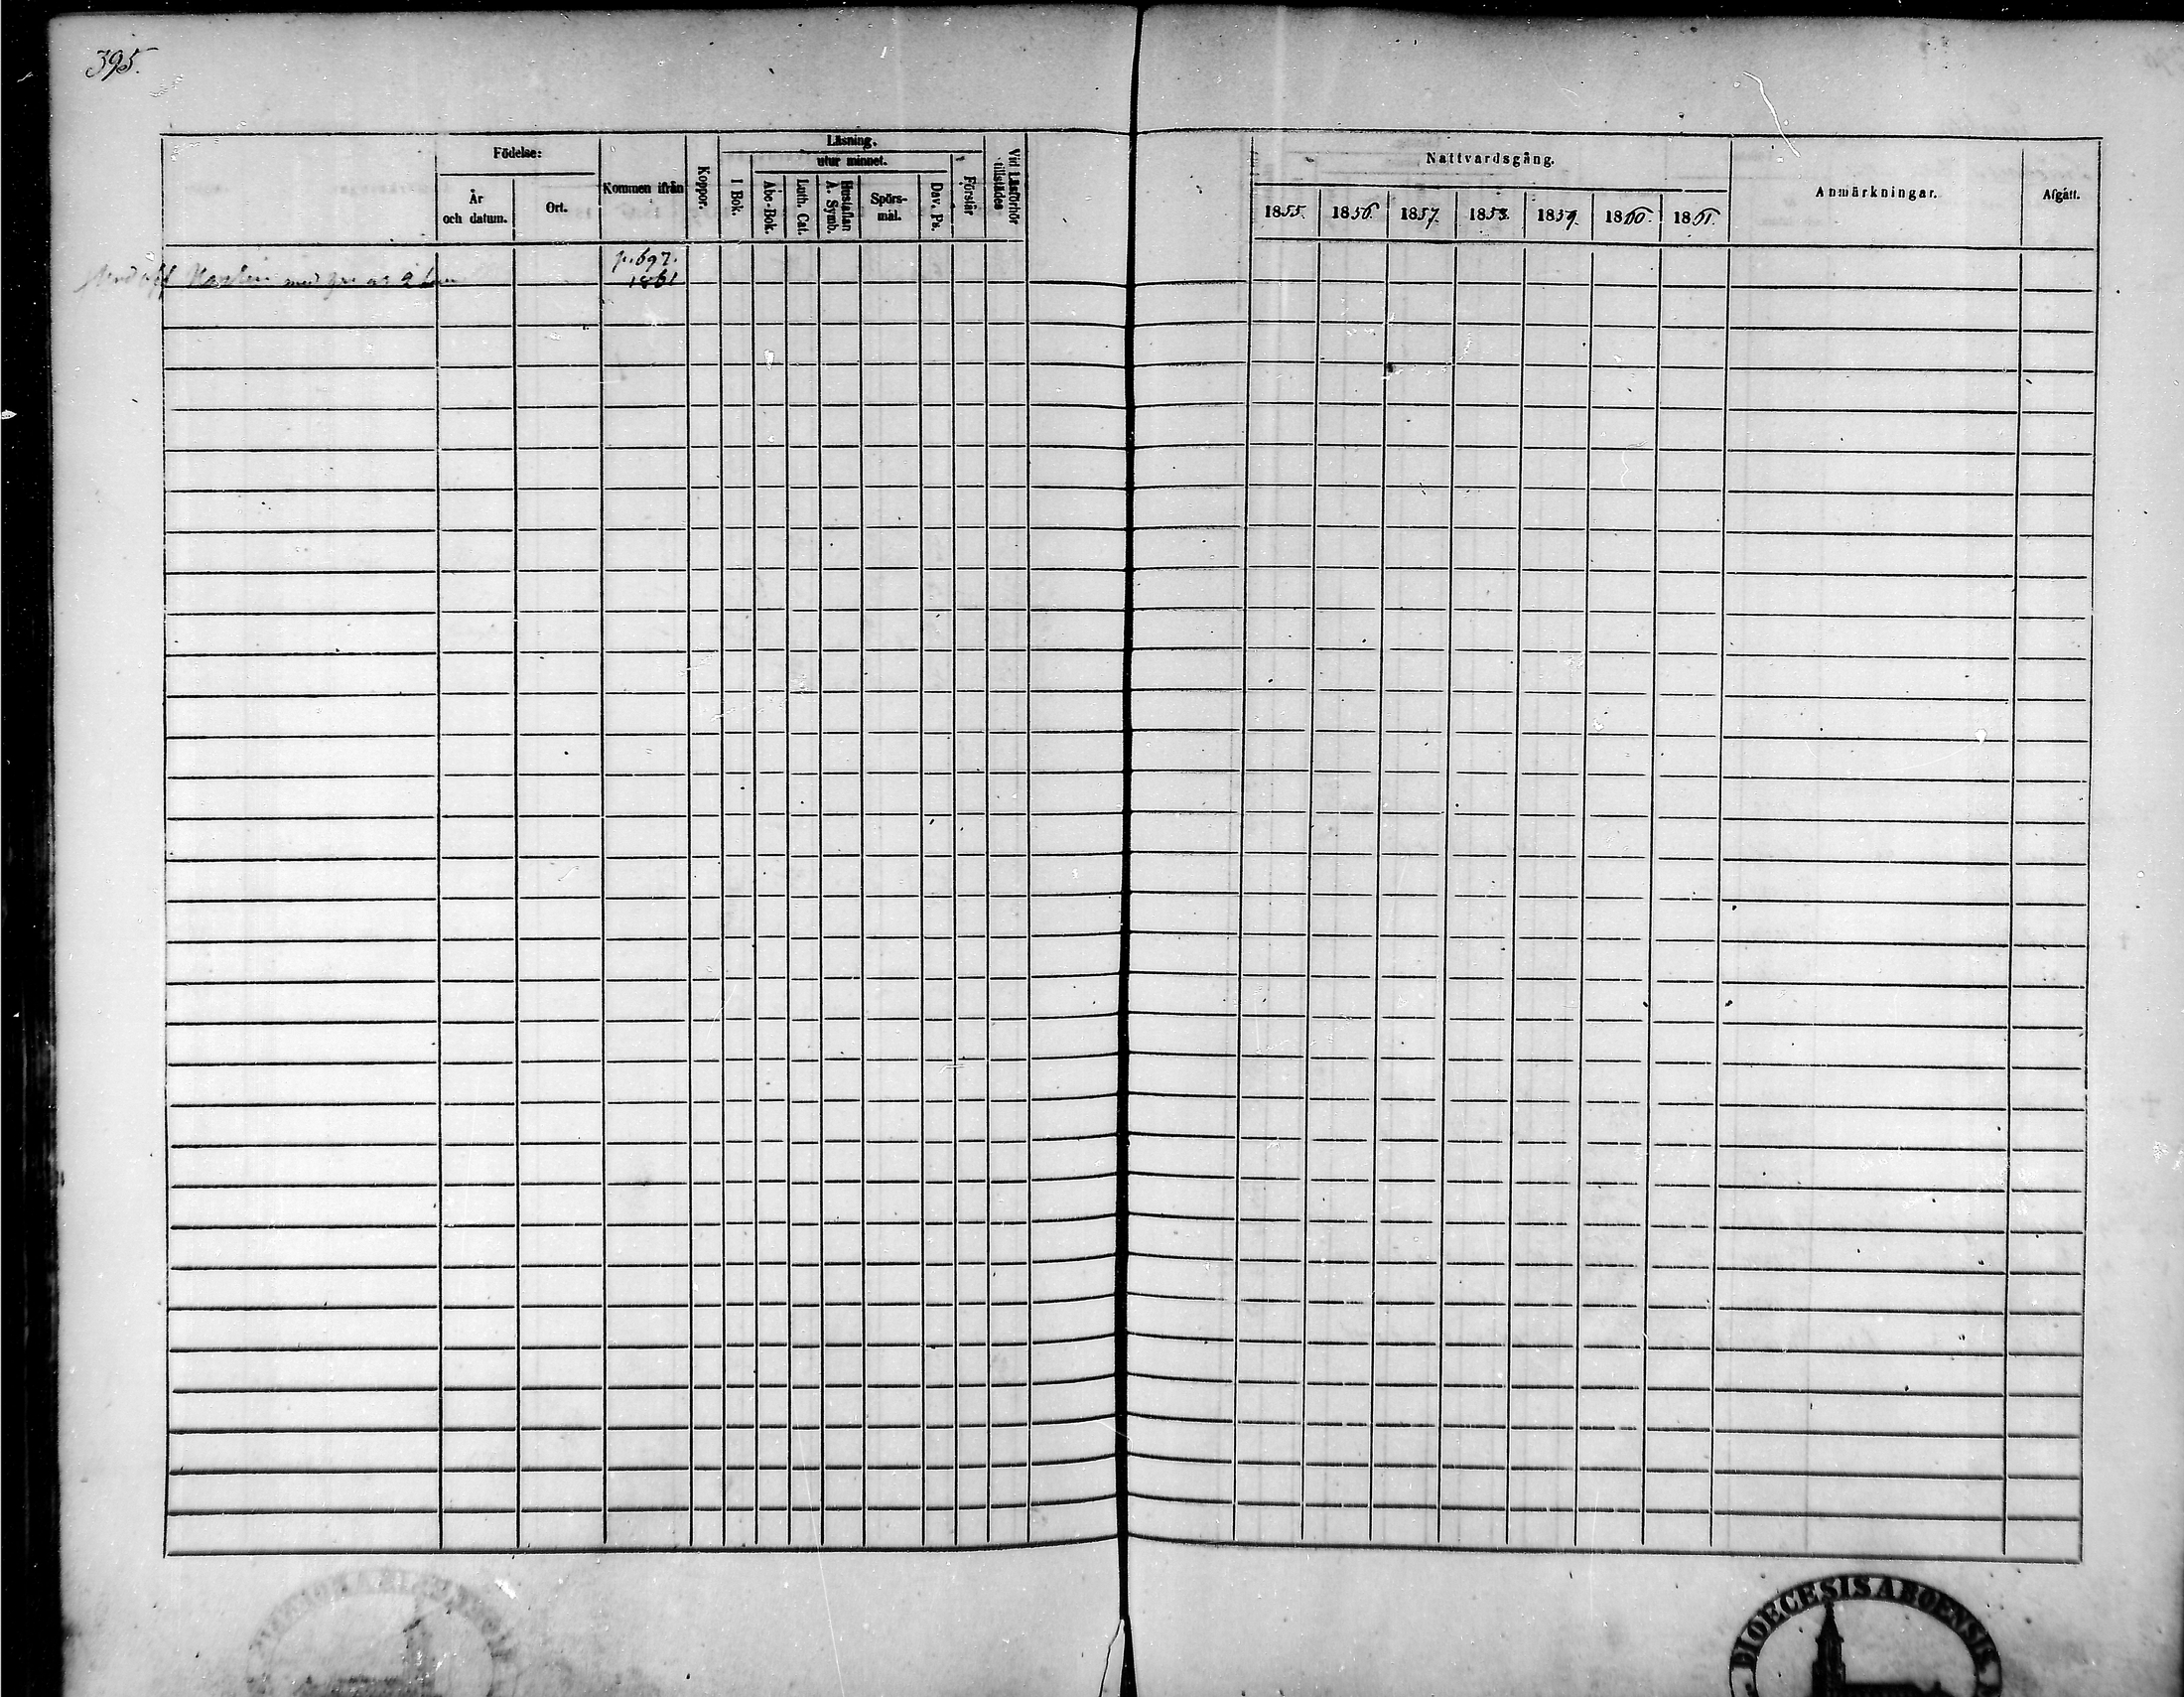 395.
Födelse:
År
och datum.
Ort.
Kommen ifrån
Koppor.
Läsning.
utur minnet.
I Bok.
Abc-Bok.
Luth. Cat.
Hustaflan
A. Symb.
Spörs-
mål.
Dav. Ps.
Förstår
Vid Läsförhör
tillstädes
Nattvardsgång.
1855.
1856.
1857.
1858.
1859.
1860.
1861.
Anmärkningar.
Afgått.
p. 697.
1861
med
DIOECESIS ABOENSIS